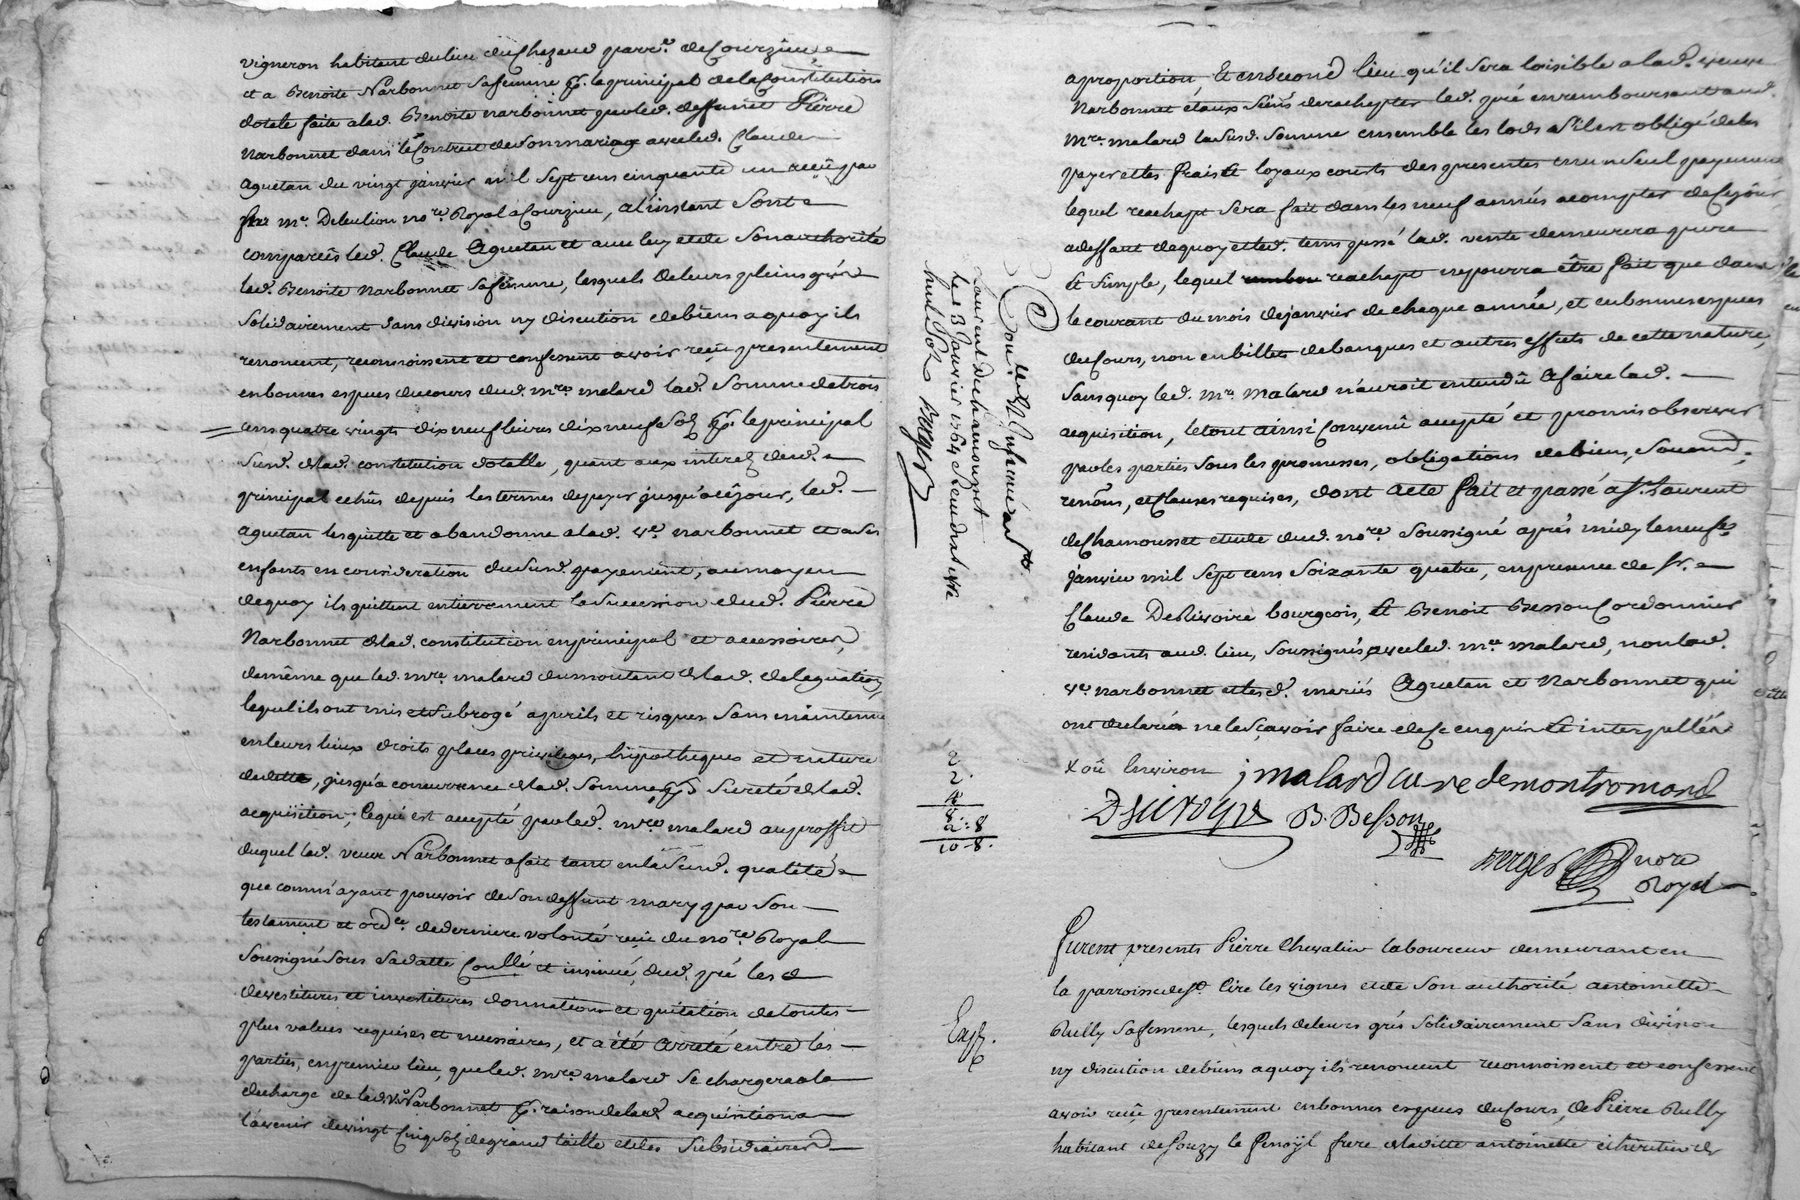 vigneron habitant du lieu du Chazaud parr.e de Courzieu
et a Benoite Narbonnet sa femme pr. le principal de la Constitution
dotale faite a lad. Benoite narbonnet par led. deffunct Pierre
Narbonnet dans le Contrat de son mariage avec led. Claude
Aguetan du vingt janvier mil sept cens cinquante un reçü par
me. Delculion nore. Royal a Courzieu, a l'instant sont
comparûs led. Claude Aguetan et avec luy et de son authorité
lad. Benoite Narbonnet sa femme, lesquels de leurs pleins grés
solidairement sans division ny discution de biens a quoy ils
renoncent, reconnoissent et confessent avoir reçu presentement
en bonnes especes du cours dud. mre. malard lad. somme de trois
cens quatre vingts dix neuf livres dix neuf sols pr. le principal
susd. de lad. constitution dotalle, quant aux interets dud.
principal echûs depuis les termes de payer jusqu'a cejour, led.
aguetan les quitte et abandonne a lad. ve. narbonnet et a ses
enfants en consideration du susd. payement, au moyen
de quoy ils quittent entierement la succession dud. Pierre
Narbonnet de lad. constitution en principal et accessoires,
de même que led. mre. malard du montant de lad. delegation,
lequel ils ont mis et subrogé a perils et risques sans maintenue
en leurs lieux droits places privileges, hipotheques et nature
de dette, jusqu'a concurrence de lad. somme pr. sureté de lad.
acquisition, ce qui est accepté par led. mre. malard au proffit
duquel lad. veuve Narbonnet a fait tant en la susd. qualité
que comm'ayant pouvoir de son deffunt mary par son
testament et ordce. de derniere volonté reçu du nore. Royal
soussigné sous sa datte Conllé et insinué, dud. pré les
devestitures et investitures donnation et quitation de toutes
plus values requises et necessaires, et a été arreté entre les
parties, en premier lieu, que led. mre. malard se chargera a la
decharge de lad. ve. Narbonnet pr. raison de lad. acquisition a
l'avenir de vingt cinq sols de grand taille et des subsidiaires
a proportion, Et en second lieu qu'il sera loisible a lad. veuve
Narbonnet et aux siens de rachepter led. pré en remboursant aud.
mre. malard la susd. somme ensemble les lods s'il est obligé de les
payer et les frais et loyaux couts des presentes en un seul payement
lequel reachapt sera fait dans les neuf années a compter de cejour
a deffaut de quoy et led. tems passé lad. vente demeurera pure
Et simple, lequel reachapt ne pourra être fait que dans
le courant du mois de janvier de chaque année, et en bonnes especes
du cours, non en billets de banques et autres effets de cette nature,
sans quoy led. mre. malard n'auroit entendu a faire lad.
acquisition, le tout ainsi Convenû accepté et promis observer
par les parties sous les promesses, obligations de biens,
renons, et clauses requises, dont acte fait et passé a St. Laurent
de Chamousset etude dud. nore. soussigné après midy le neuf x
janvier mil sept cens soixante quatre, en presence de sr.
Claude Desrivoire bourgeois, Et Benoit Besson Cordonnier
residants aud. lieu, soussignés, avec led. mre. malard, non lad.
ve. narbonnet et lesd. mariés Aguetan et Narbonnet qui
ont declaré ne le sçavoir faire de ce enquis Et interpellés
x où Environ j malard cure de montromand
B. Besson
verger nore
Royal
Controllé et insinué a St
Laurent de chamousset
le 13 janvier 1764
verger
2
2.
4
8.
2. 8
10 - 8.
Furent presents Pierre Chevalier laboureur demeurant en
la parroisse de st. Cire les vignes et de son authorité antoinette
Rully sa femme, lesquels de leurs grés solidairement sans division
ny discution de biens a quoy ils renoncent reconnoissent et confessent
avoir reçu presentement en bonnes especes du cours, de Pierre Rully
habitant de Souzy le frere de laditte antoinette et heritier de
Exp.